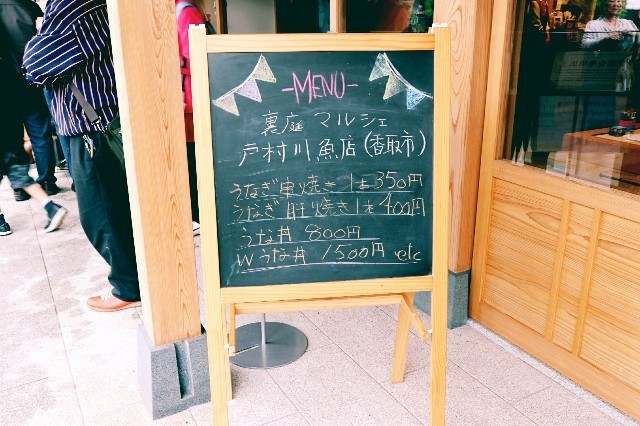 -MENU-
裏庭 マルシェ
戸村川魚店(香取市)
うなぎ串焼き 1本350円
うなぎ肝焼き 1本400円
うな丼 800円
Wうな丼 1500円 etc